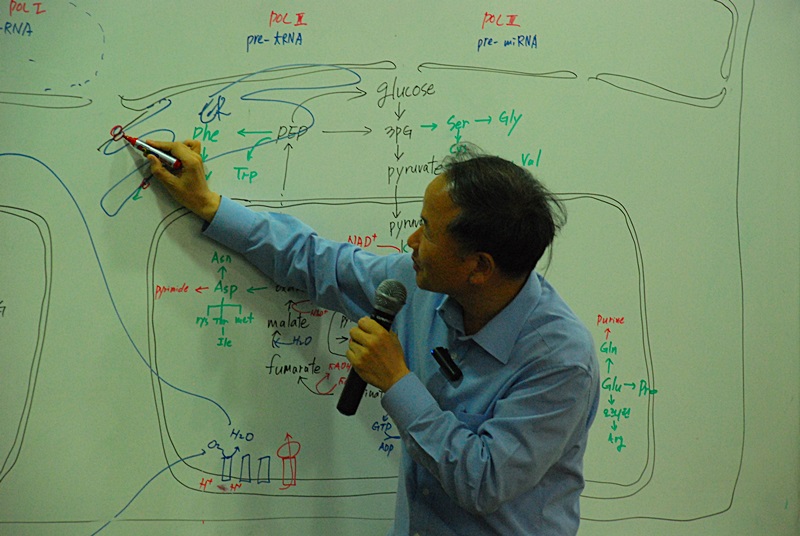 POL I
-RNA
POL III
pre-tRNA
POL II
pre-miRNA
glucose
Phe
PEP
3PG
Ser
Gly
Trp
pyruvate
Val
NAD+
Asn
pyrimide
Asp
Lys Thr met
Ile
malate
H2O
fumarate
GTP
ADP
Purine
Gln
Glu
Pro
오르니틴
Arg
O2
H2O
H+
H+